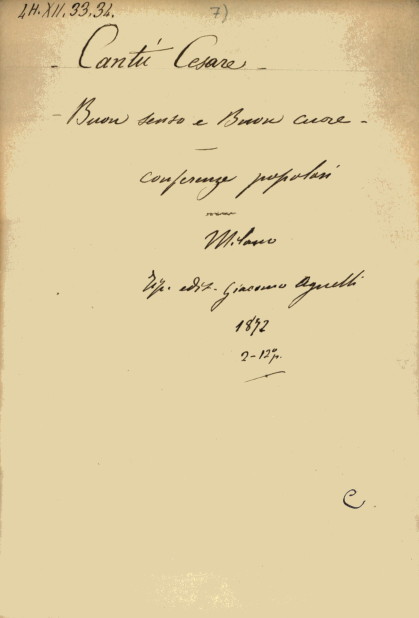 4H.XII.33.34.
7)
Cantù Cesare -
- Buon senso e Buon cuore -
conferenze popolari
Milano
Tip. edit. Giacomo Agnelli
1872
2-12°p.
C